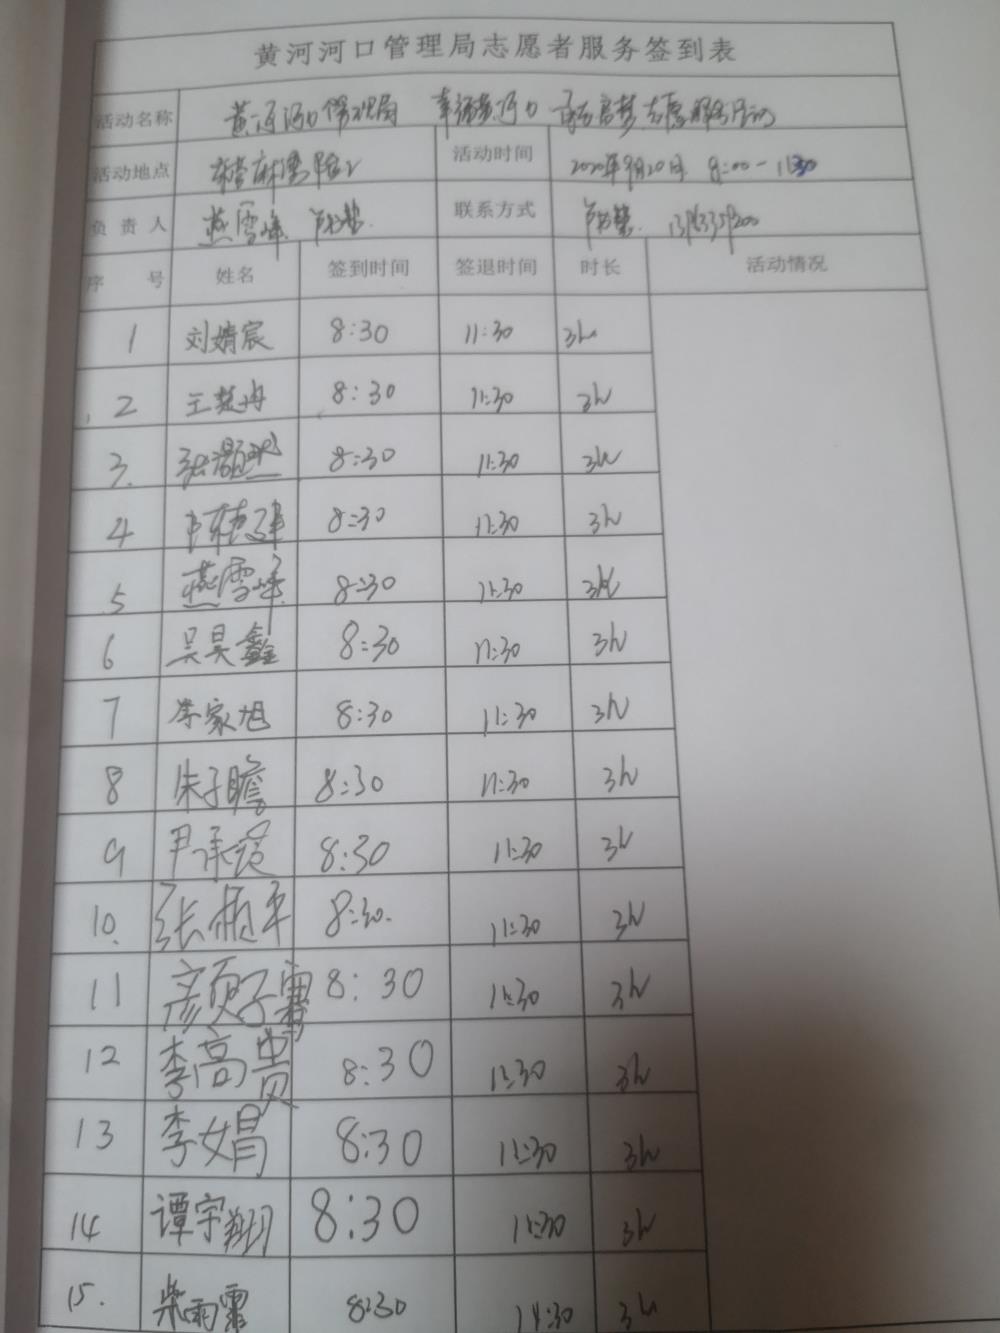 黄河河口管理局志愿者服务签到表
活动名称 黄河河口管理局 幸福黄河口 志愿服务活动
活动地点
活动时间 2020年9月20日 8:00-11:30
负责人 燕雪峰
联系方式
序号 姓名 签到时间 签退时间 时长 活动情况
1 刘婧宸 8:30 11:30 3h
2 王楚冉 8:30 11:30 3h
3. 张灏然 8:30 11:30 3h
4 8:30 11:30 3h
5 燕雪峰 8:30 11:30 3h
6 吴昊鑫 8:30 11:30 3h
7 李家旭 8:30 11:30 3h
8 朱子瞻 8:30 11:30 3h
9 尹承 8:30 11:30 3h
10. 张桓平 8:30. 11:30 3h
11 颜子骞 8:30 11:30 3h
12 李高贵 8:30 11:30 3h
13 李娟 8:30 11:30 3h
14 谭宇翔 8:30 11:30 3h
15. 柴雨霏 8:30 14:30 3h